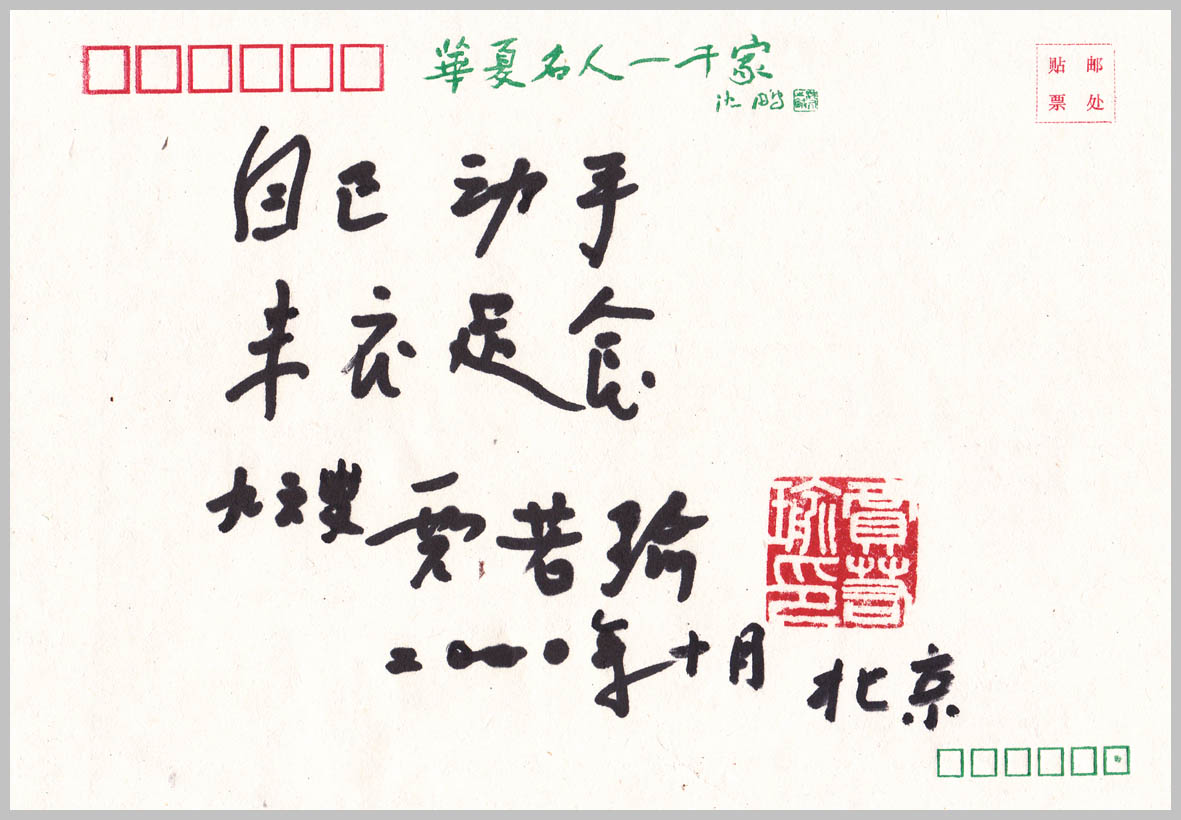 華夏名人一千家
沈鹏
贴邮
票处
自己 动手
丰衣足食
叟 贾若瑜
賈若瑜印
二〇〇〇年十月 北京